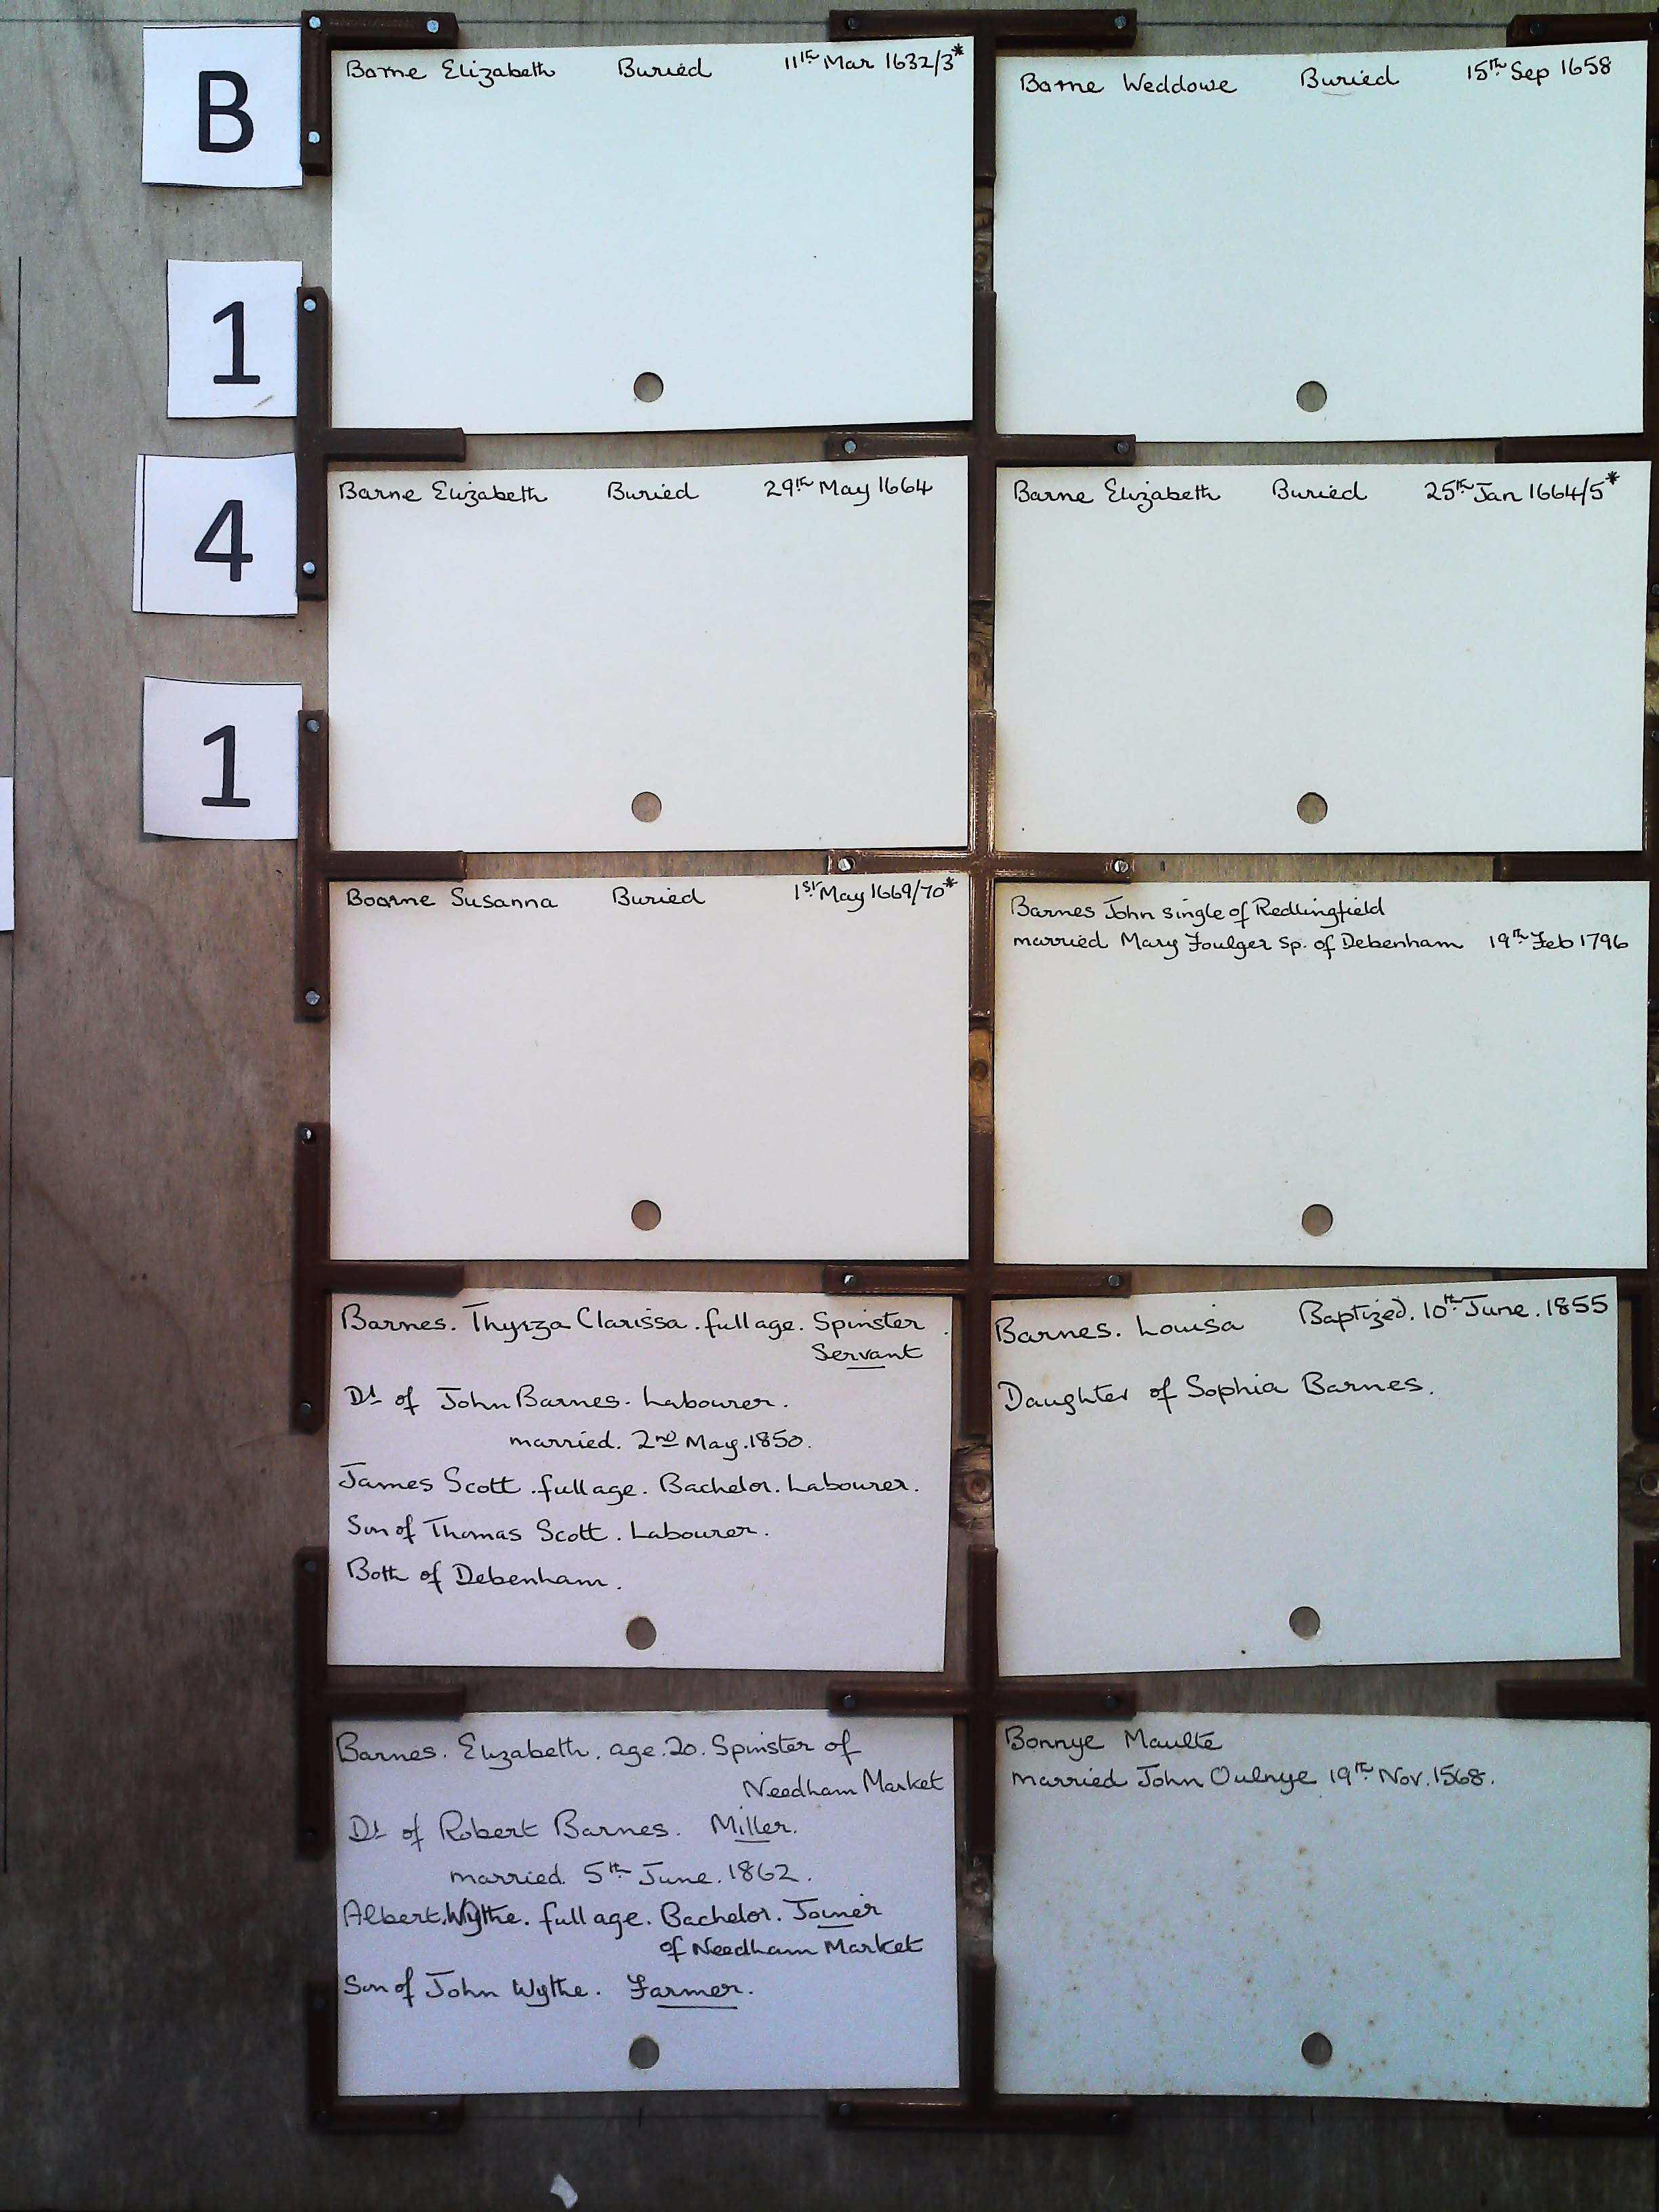 B
1
4
1
Barne Elizabeth Buried 11th Mar 1632/3*
Barne Weddowe Buried 15th Sep 1658
Barne Elizabeth Buried 29th May 1664
Barne Elizabeth Buried 25th Jan 1664/5*
Boarne Susanna Buried 1st May 1669/70*
Barnes John single of Redlingfield
married Mary Foulger sp. of Debenham 19th Feb 1796
Barnes. Thyrza Clarissa. full age. Spinster.
Servant
Dt of John Barnes. Labourer.
married. 2nd May. 1850.
James Scott. full age. Bachelor. Labourer.
Son of Thomas Scott. Labourer.
Both of Debenham.
Barnes. Louisa Baptized. 10th June. 1855
Daughter of Sophia Barnes.
Barnes. Elizabeth. age. 20. Spinster of
Needham Market
Dt of Robert Barnes. Miller.
married. 5th June. 1862.
Albert. Wythe. full age. Bachelor. Joiner
of Needham Market
Son of John Wythe. Farmer.
Bonnye Maulte
married John Oulnye 19th Nov. 1568.